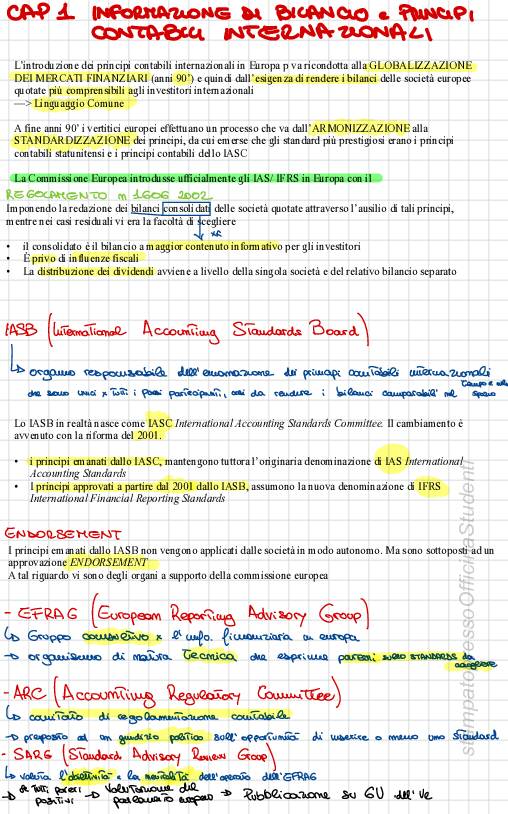 CAP 1 INFORMAZIONE DI BILANCIO e PRINCIPI
CONTABILI INTERNAZIONALI
L'introduzione dei principi contabili internazionali in Europa p va ricondotta alla GLOBALIZZAZIONE
DEI MERCATI FINANZIARI (anni 90') e quindi dall'esigenza di rendere i bilanci delle società europee
quotate più comprensibili agli investitori internazionali
---> Linguaggio Comune
A fine anni 90' i vertitici europei effettuano un processo che va dall'ARMONIZZAZIONE alla
STANDARDIZZAZIONE dei principi, da cui emerse che gli standard più prestigiosi erano i principi
contabili statunitensi e i principi contabili dello IASC
La Commissione Europea introdusse ufficialmente gli IAS/ IFRS in Europa con il
REGOLAMENTO n 1606 2002
Imponendo la redazione dei bilanci consolidati delle società quotate attraverso l'ausilio di tali principi,
mentre nei casi residuali vi era la facoltà di scegliere
xké
• il consolidato è il bilancio a maggior contenuto informativo per gli investitori
• È privo di influenze fiscali
• La distribuzione dei dividendi avviene a livello della singola società e del relativo bilancio separato
IASB (International Accounting Standards Board)
↳ organo responsabile dell'emanazione dei principi contabili internazionali
che sono unici x tutti i paesi partecipanti, così da rendere i bilanci comparabili nel tempo e nello
spazio
Lo IASB in realtà nasce come IASC International Accounting Standards Committee. Il cambiamento è
avvenuto con la riforma del 2001.
• i principi emanati dallo IASC, mantengono tuttora l'originaria denominazione di IAS International
Accounting Standards
• I principi approvati a partire dal 2001 dallo IASB, assumono la nuova denominazione di IFRS
International Financial Reporting Standards
ENDORSEMENT
I principi emanati dallo IASB non vengono applicati dalle società in modo autonomo. Ma sono sottoposti ad un
approvazione ENDORSEMENT
A tal riguardo vi sono degli organi a supporto della commissione europea
- EFRAG (European Reporting Advisory Group)
↳ Gruppo consultivo x l'info. finanziaria in europa
→ organismo di natura tecnica che esprime pareri sugli STANDARDS da
- ARC (Accounting Regulatory Committee)
↳ comitato di regolamentazione contabile
→ preposto ad un giudizio politico sull'opportunità di inserire o meno uno standard
- SARG (Standard Advisory Review Group)
↳ valuta l'obiettività e la neutralità dell'operato dell'EFRAG
→ se tutti pareri → Valutazione del → Pubblicazione su GU dell'Ue
positivi parlamento europeo
stampatopressoOfficinaStudenti